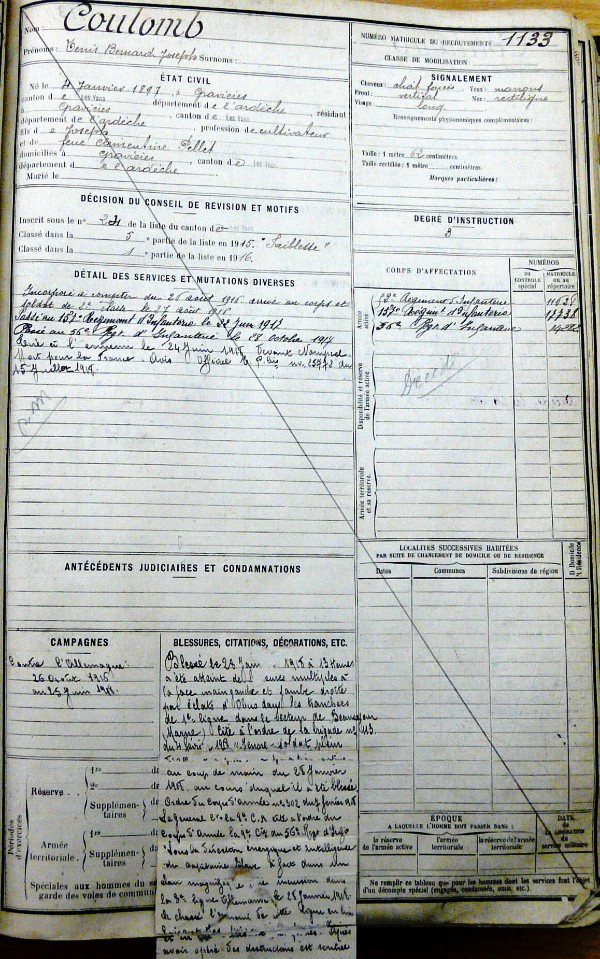 Nom : Coulomb
Prénoms : Denis Bernard Joseph Surnoms :
ÉTAT CIVIL
Né le 4 Janvier 1897, à Gravières
canton d e Les Vans département d e l'ardèche, résidant
à Gravières canton d e Les Vans
département d e l'ardèche, profession de cultivateur
fils d e Joseph
et de feue Clémentine Pellet
domiciliés à Gravières canton d e Les Vans
département d e l'ardèche
Marié le
DÉCISION DU CONSEIL DE REVISION ET MOTIFS
Inscrit sous le n° 24 de la liste du canton de Les Vans
Classé dans la 5 e partie de la liste en 1915. "Faiblesse"
Classé dans la 1 e partie de la liste en 1916.
DÉTAIL DES SERVICES ET MUTATIONS DIVERSES
Incorporé à compter du 26 août 1916 arrivé au corps et
soldat de 2e classe le 27 août 1916
Passé au 157e Régiment d'Infanterie le 22 Juin 1917
Passé au 56e Rgt d'Infanterie le 18 octobre 1917
à l'ennemi le 24 Juin 1918
Mort pour la France. Avis Officiel
15 Juillet 1918.
ANTÉCÉDENTS JUDICIAIRES ET CONDAMNATIONS
CAMPAGNES
Contre l'Allemagne
26 Août 1916
au 23 Juin 1918.
Périodes d'exercices
Réserve
1re de
2e de
Supplémentaires de
Armée territoriale.
1re de
Supplémentaires de
Spéciales aux hommes du se
garde des voies de commun
BLESSURES, CITATIONS, DÉCORATIONS, ETC.
Blessé le 23 Juin 1918 à 13 heures
a été atteint de multiples à
la face main gauche et jambe droite
par éclats d'Obus dans les tranchées
de 1re ligne dans le secteur de
(Marne) Cité à l'ordre de la brigade n° 113
soldat plein
au coup de main du 28 Janvier
1918 au cours duquel il a été blessé.
Ordre du Corps d'Armée n° 302 du 7 février 1918
Le général Ct le 9e C.A cite à l'ordre du
Corps d'Armée la 9e Cie du 56e Regt d'Infie
"Sous la direction énergique et intelligente
du capitaine a fait dans un
élan magnifique incursion dans
la 3e ligne Allemande le 28 Janvier 1918
a chassé l'ennemi de cette ligne en lui
avoir opéré des destructions est rentrée
NUMÉRO MATRICULE DU RECRUTEMENT : 1133
CLASSE DE MOBILISATION :
SIGNALEMENT
Cheveux : chât foncés Yeux : marrons
Front : vertical Nez : rectiligne
Visage : long
Renseignements physionomiques complémentaires :
Taille : 1 mètre 62 centimètres.
Taille rectifiée : 1 mètre centimètres.
Marques particulières :
DEGRÉ D'INSTRUCTION
3
CORPS D'AFFECTATION
NUMÉROS
DU CONTROLE spécial
MATRICULE OU AU répertoire
Armée active
Régiment d'Infanterie
157e Régiment d'Infanterie
56e Rgt d'Infanterie
Disponibilité et réserve de l'armée active
Décédé
Armée territoriale et sa réserve.
LOCALITÉS SUCCESSIVES HABITÉES
PAR SUITE DE CHANGEMENT DE DOMICILE OU DE RÉSIDENCE
Dates
Communes
Subdivisions de région
D Domicile
R Résidence
ÉPOQUE
A LAQUELLE L'HOMME DOIT PASSER DANS :
la réserve de l'armée active
l'armée territoriale
la réserve de l'armée territoriale
DATE DE LA LIBÉRATION DU service militaire
Ne remplir ce tableau que pour les hommes dont les services font l'objet
d'un décompte spécial (engagés, condamnés, omis, etc.).